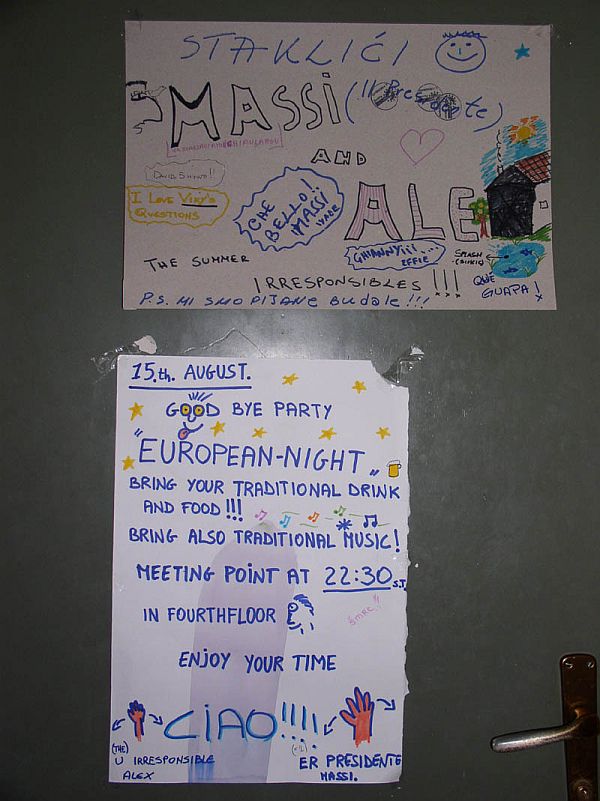 STAKLIĆI
MASSI (Il Presidente)
AND
ALE
I LOVE VIKY'S
QUESTIONS
CHE
BELLO!
MASSI
GHIANNYiii....
EFFIE
SPLASH
QUÈ
GUAPA!
THE SUMMER
IRRESPONSIBLES!!!
P.S. MI SMO PIJANE BUDALE!!!
15.th. AUGUST.
GOOD BYE PARTY
"EUROPEAN-NIGHT"
BRING YOUR TRADITIONAL DRINK
AND FOOD!!!
BRING ALSO TRADITIONAL MUSIC!
MEETING POINT AT 22:30
IN FOURTHFLOOR
ŠMRC!!
ENJOY YOUR TIME
CIAO!!!!
(THE)
U IRRESPONSIBLE
ALEX
(IL)
ER PRESIDENTE
MASSI.